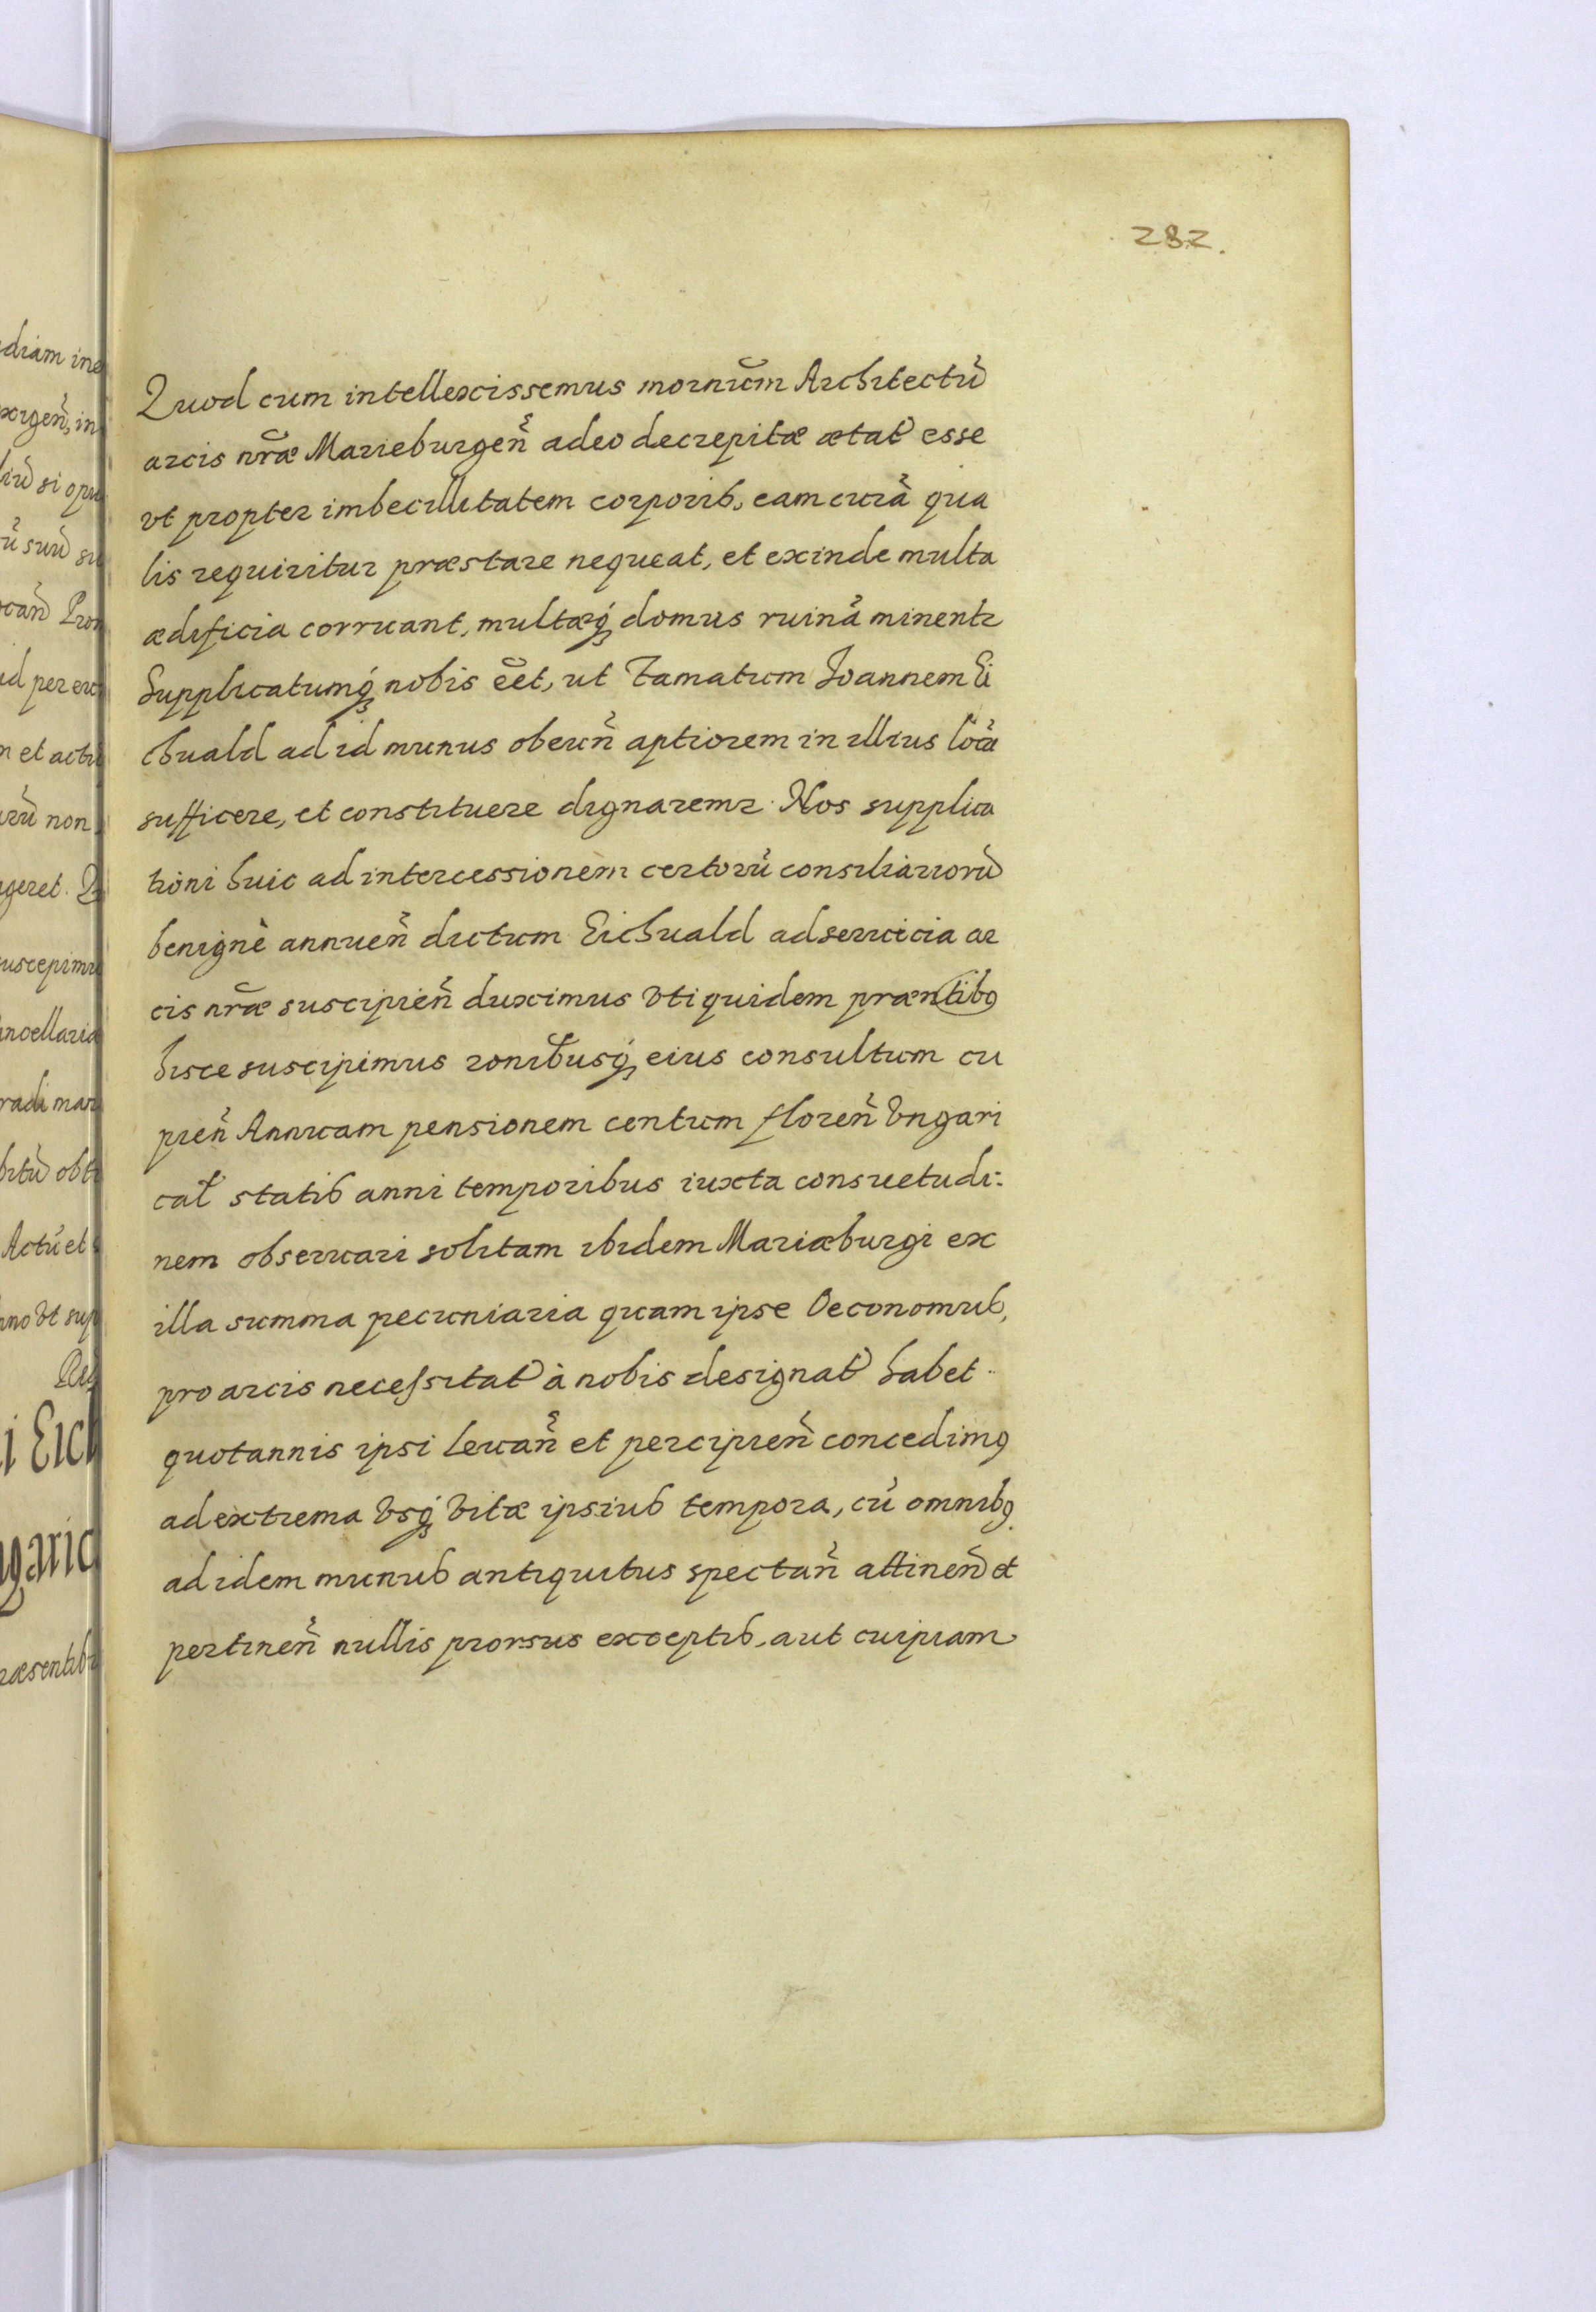 282.
Quod cum intellexissemus mornum̃ Architectũ
arcis nr̃æ Marieburgeñ adeo decrepitæ ætat esse
vt propter imbecillitatem corporis, eam curã qua
lis requiritur præstare nequeat, et exinde multa
ædificia corruant, multæq́ȝ domus ruinã minentr
Supplicatumq́ȝ nobis eẽt, ut famatum Joannem Ei
chuald ad id munus obeuñ aptiorem in illius locũ
sufficere, et constituere dignaremr. Nos supplica
tioni huic ad intercessionem certorũ consiliariorũ
benignè annueñ dictum Eichuald ad seruicia ar
cis nr̃æ suscipieñ duximus vti quidem præntibꝯ
hisce suscipimus ronibusq́ȝ eius consultum cu
pieñ Annuam pensionem centum floreñ Vngari
cal statis anni temporibus iuxta consuetudi:
nem obseruari solitam ibidem Mariæburgi ex
illa summa pecuniaria quam ipse Oeconomus,
pro arcis necessitat à nobis designat habet
quotannis ipsi leuañ et percipieñ concedimꝯ
ad extrema vsq́ȝ vitæ ipsius tempora, cũ omnibꝯ
ad idem munus antiquitus spectañ attineñ et
pertineñ nullis prorsus exceptis, aut cuipiam